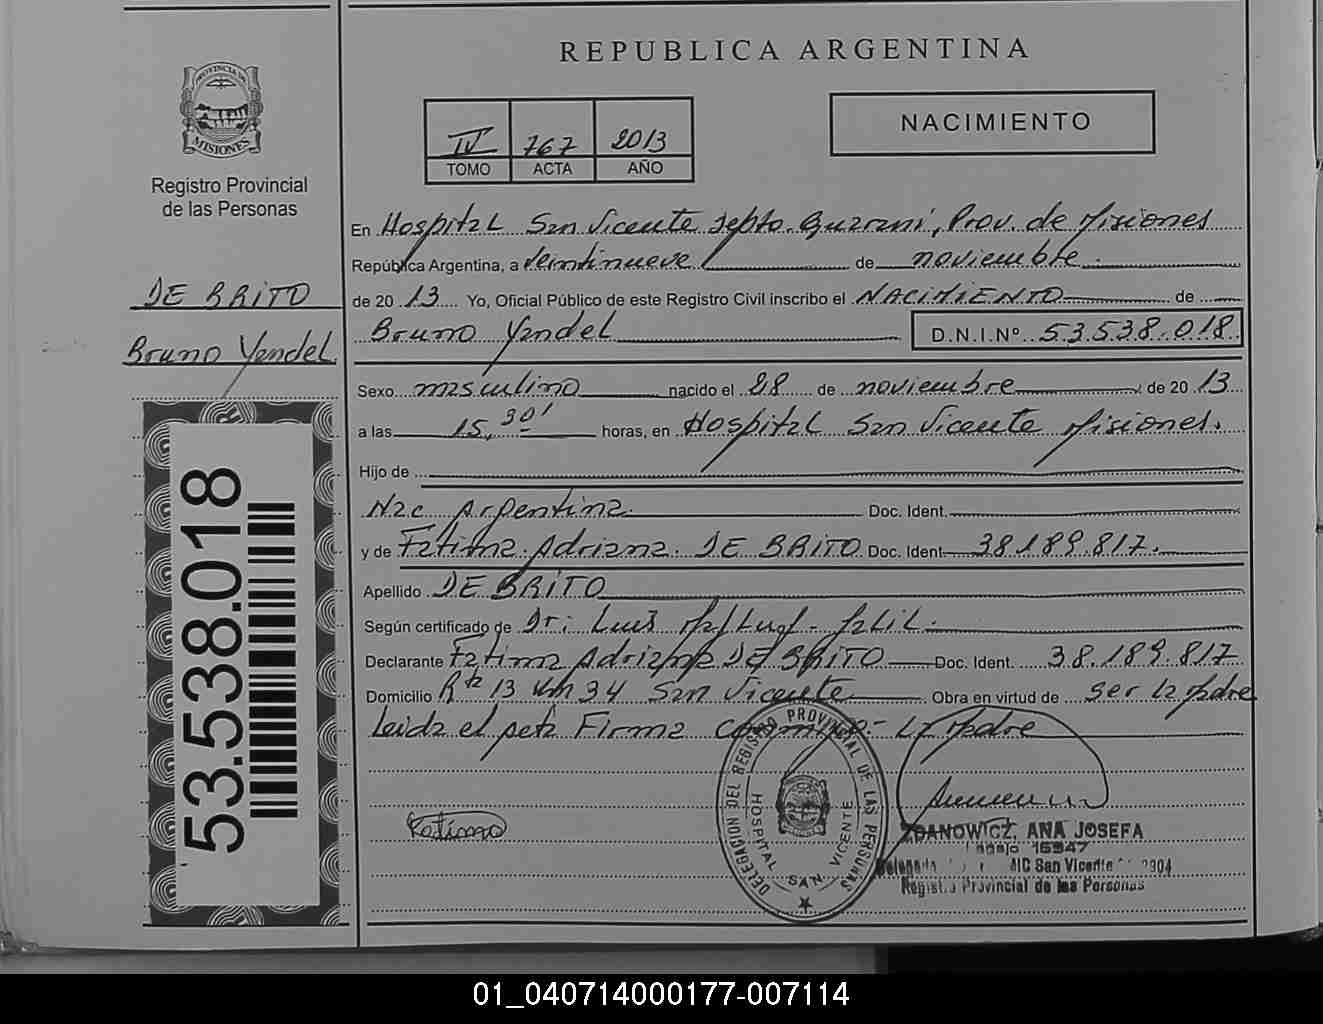 REPUBLICA ARGENTINA
PROVINCIA DE
MISIONES
Registro Provincial
de las Personas
IV 767 2013
TOMO ACTA AÑO
NACIMIENTO
DE BRITO
Bruno Yandel
53.538.018
En Hospital San Vicente Depto. Guarani, Prov. de Misiones
República Argentina, a Veintinueve de noviembre
de 2013 Yo, Oficial Público de este Registro Civil inscribo el NACIMIENTO de
Bruno Yandel D.N.I.Nº 53.538.018
Sexo masculino nacido el 28 de noviembre de 2013
a las 15,30' horas, en Hospital San Vicente Misiones.
Hijo de
Nac Argentina Doc. Ident.
y de Fatima Adriana DE BRITO Doc. Ident 38189.817.
Apellido DE BRITO
Según certificado de Dr: Luis
Declarante Fatima Adriana DE BRITO Doc. Ident. 38.189.817
Domicilio Rta 13 Km 34 San Vicente Obra en virtud de ser la Madre
Leida el Acta Firma conmigo La Madre
Fatima
DELEGACION DEL REGISTRO PROVINCIAL DE LAS PERSONAS
HOSPITAL SAN VICENTE
ZDANOWICZ, ANA JOSEFA
Legajo 16947
Delegada AIC San Vicente 2904
Registro Provincial de las Personas
01_040714000177-007114